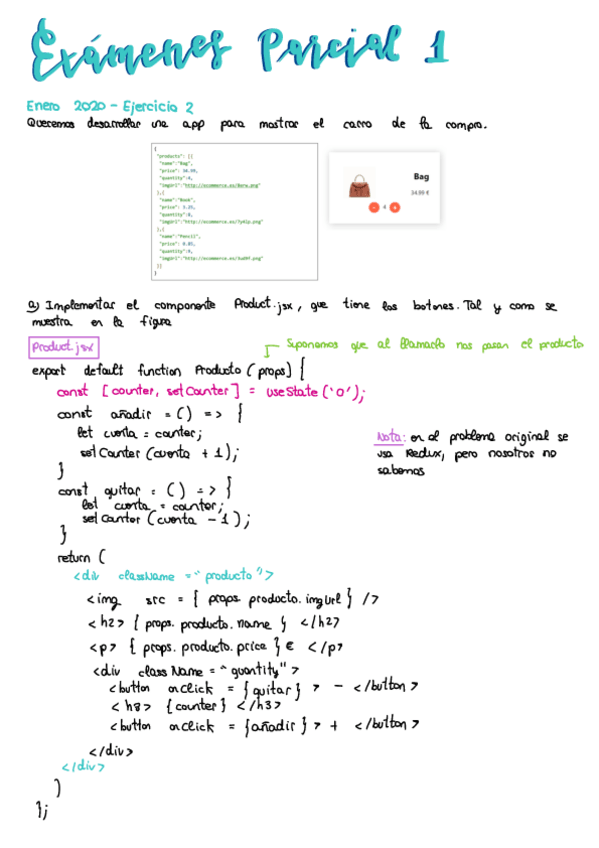 Exámenes Parcial 1
Enero 2020 - Ejercicio 2
Queremos desarrollar una app para mostrar el carro de la compra.
{
"products": [{
"name":"Bag",
"price": 34.99,
"quantity":4,
},{
"name":"Book",
"price": 3.25,
"quantity":8,
},{
"name":"Pencil",
"price": 0.85,
"quantity":9,
}]
}
Bag
34.99 €
- 4 +
a) Implementar el componente Product.jsx, que tiene los botones. Tal y como se
muestra en la figura
Product.jsx
Suponemos que al llamarlo nos pasan el producto
export default function Producto (props) {
const [counter, setCounter] = useState('0');
const añadir = () => {
let cuenta = counter;
setCounter (cuenta + 1);
}
const quitar = () => {
let cuenta = counter;
setCounter (cuenta - 1);
}
Nota: en el problema original se
usa Redux, pero nosotros no
sabemos
return (
<div className = "producto">
<img src = { props.producto.imgUrl } />
<h2> { props.producto.name } </h2>
<p> { props.producto.price } € </p>
<div className = "quantity">
<button onClick = {quitar} > - </button>
<h3> {counter} </h3>
<button onClick = {añadir} > + </button>
</div>
</div>
)
};